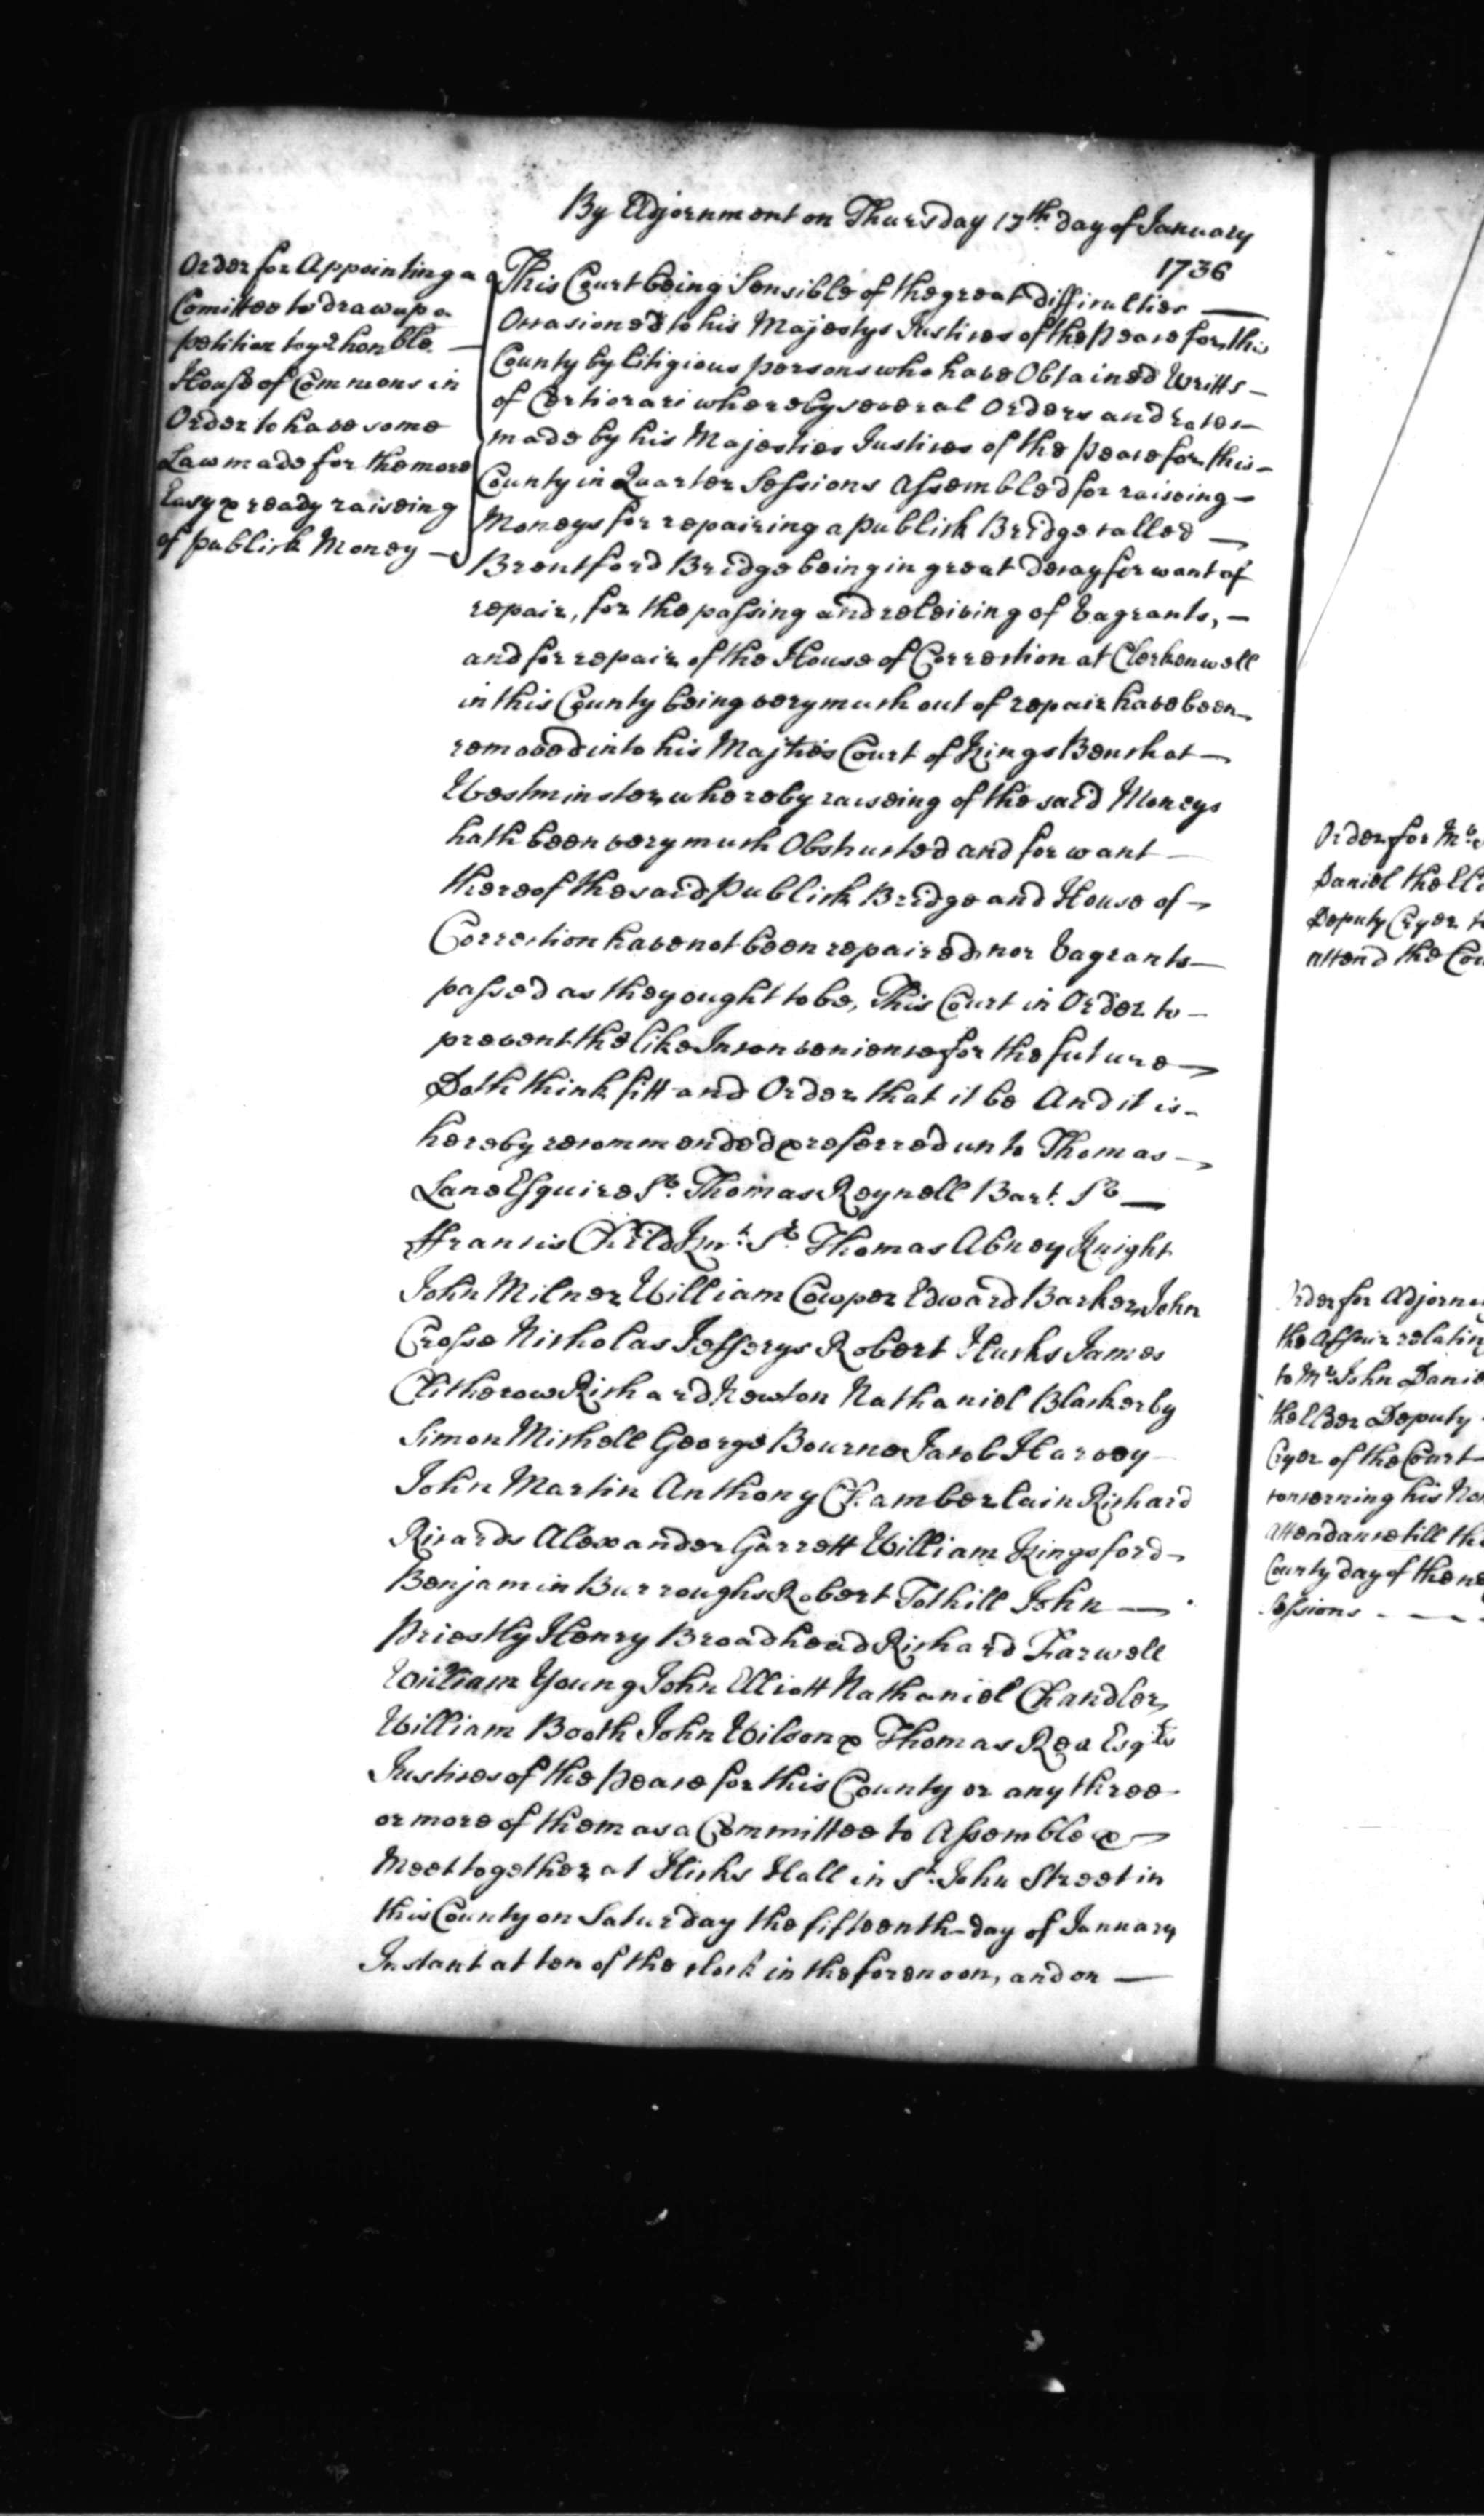 By Adjornment on Thursday 13th. day of January
1736
Order for Appointing a
Comittee to draw up a
petition to ye honble.
House of Commons in
Order to have some
Law made for the more
Easy & ready raiseing
of publick Money
This Court being Sensible of the great difficulties
Occasioned to his Majestys Justices of the Peace for this
County by litigious persons who have Obtained Writts
of Certiorari whereby several Orders and rates
made by his Majesties Justices of the Peace for this
County in Quarter Sessions Assembled for raiseing
Moneys for repairing a publick Bridge called
Brentford Bridge being in great decay for want of
repair, for the passing and releiving of Vagrants,
and for repair of the House of Correction at Clerkenwell
in this County being very much out of repair have been
removed into his Majties Court of Kings Bench at
Westminster, whereby raiseing of the said Moneys
hath been very much Obstructed and for want
thereof the said Publick Bridge and House of
Correction have not been repaired, nor Vagrants
passed as they ought to be, This Court in Order to
prevent the like Inconvenience for the future
Doth think fitt and Order that it be And it is
hereby recommended & referred unto Thomas
Lane Esquire Sr. Thomas Reynell Bart. Sr
ffrancis Child Knt. Sr. Thomas Abney Knight
John Milner William Cowper Edward Barker John
Crosse Nicholas Jefferys Robert Hucks James
Clitherow Richard Newton Nathaniel Blackerby
Simon Michell George Bourne Jacob Harvey
John Martin Anthony Chamberlain Richard
Ricards Alexander Garrett William Kingsford
Benjamin Burroughs Robert Tothill John
Priestly Henry Broadhead Richard Farwell
William Young John Elliott Nathaniel Chandler
William Booth John Wilson & Thomas Rea Esqrs
Justices of the Peace for this County or any three
or more of them as a Committee to Assemble &
Meet together at Hicks Hall in St. John Street in
this County on Saturday the fifteenth day of January
Instant at ten of the clock in the forenoon, and on
Order for Mr.
Daniel the
Deputy Cryer
attend the
Order for
the Affair
to Mr. John
the Elder Deputy
Cryer of the Court
concerning his
Attendance till the
County day of the
Sessions